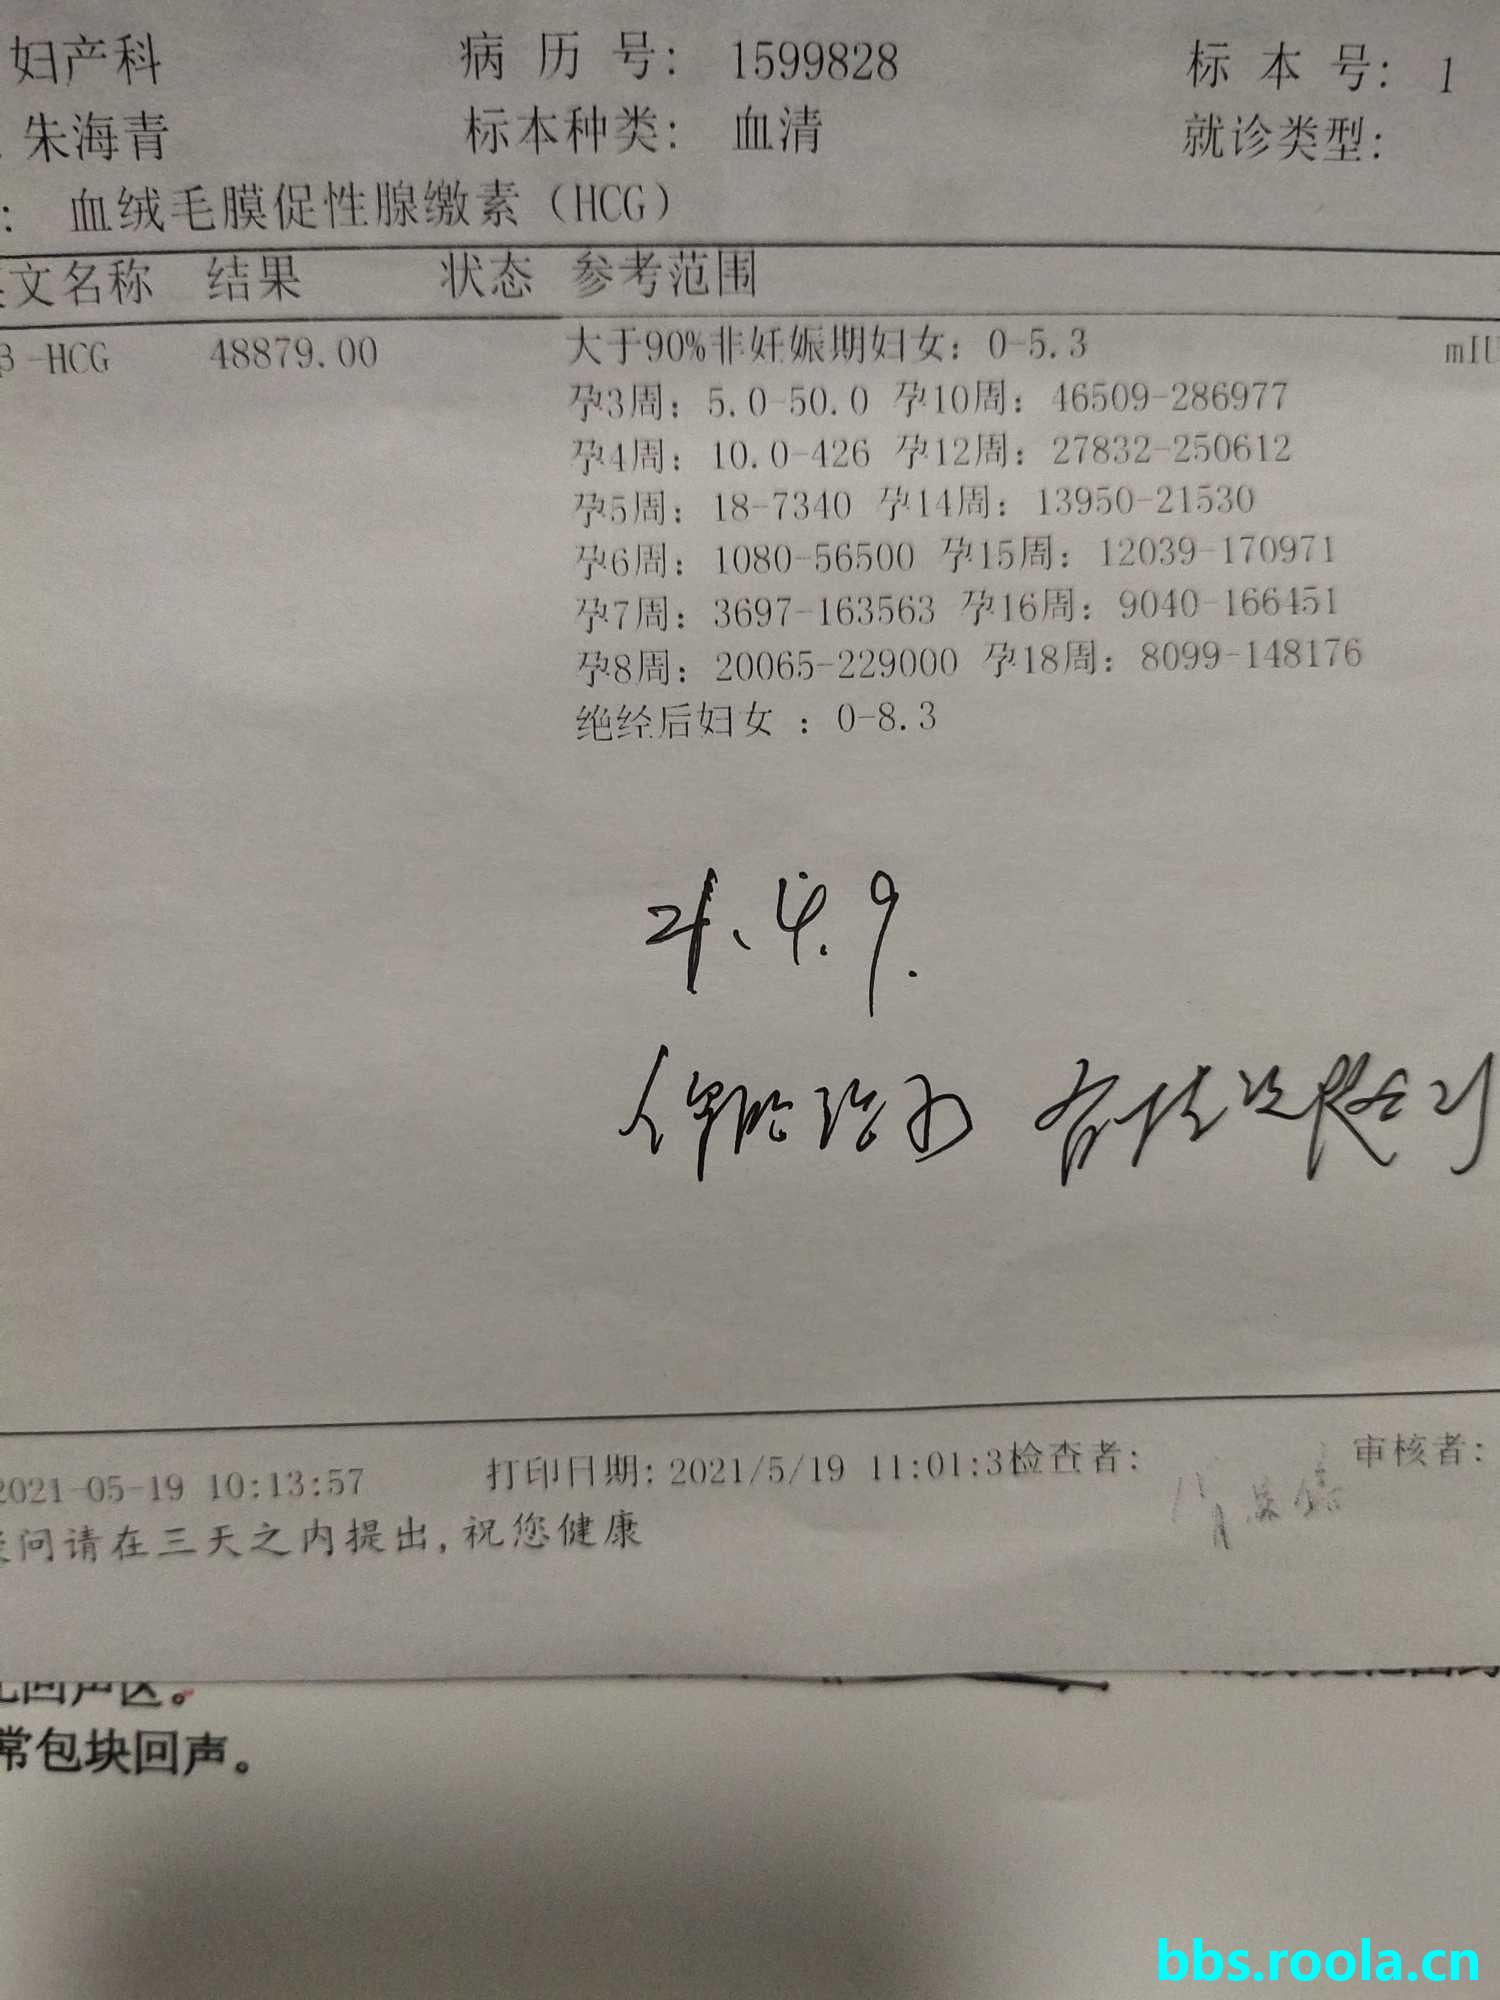 妇产科 病 历 号: 1599828 标 本 号: 1
朱海青 标本种类: 血清 就诊类型:
: 血绒毛膜促性腺缴素(HCG)
文名称 结果 状态 参考范围
β-HCG 48879.00 大于90%非妊娠期妇女: 0-5.3 mIU
孕3周: 5.0-50.0 孕10周: 46509-286977
孕4周: 10.0-426 孕12周: 27832-250612
孕5周: 18-7340 孕14周: 13950-21530
孕6周: 1080-56500 孕15周: 12039-170971
孕7周: 3697-163563 孕16周: 9040-166451
孕8周: 20065-229000 孕18周: 8099-148176
绝经后妇女 : 0-8.3
21.4.9.
2021-05-19 10:13:57 打印日期: 2021/5/19 11:01:3检查者: 审核者:
问请在三天之内提出,祝您健康
回声区。
常包块回声。
bbs.roola.cn